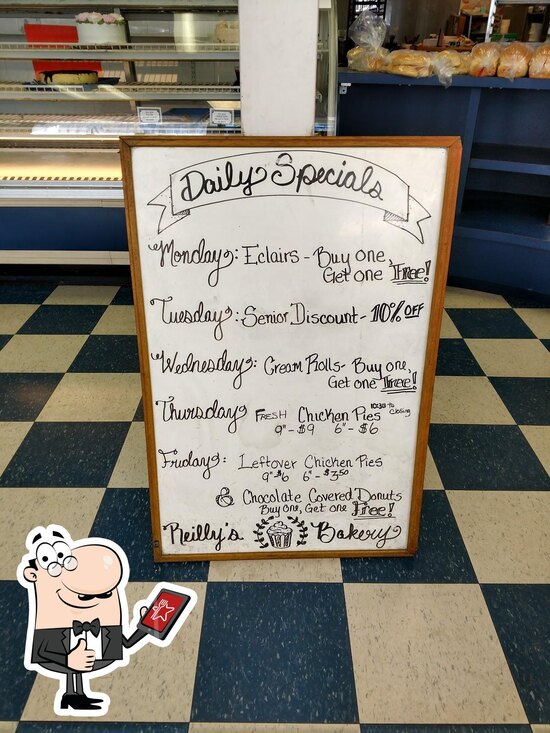 Daily Specials
Monday: Eclairs - Buy one,
Get one Free!
Tuesday: Senior Discount - 10% OFF
Wednesday: Cream Rolls - Buy one,
Get one Free!
Thursday FRESH Chicken Pies 10:30 to closing
9" - $9 6" - $6
Friday: Leftover Chicken Pies
9" $6 6" - $3.50
& Chocolate Covered Donuts
Buy one, Get one Free!
Reilly's Bakery